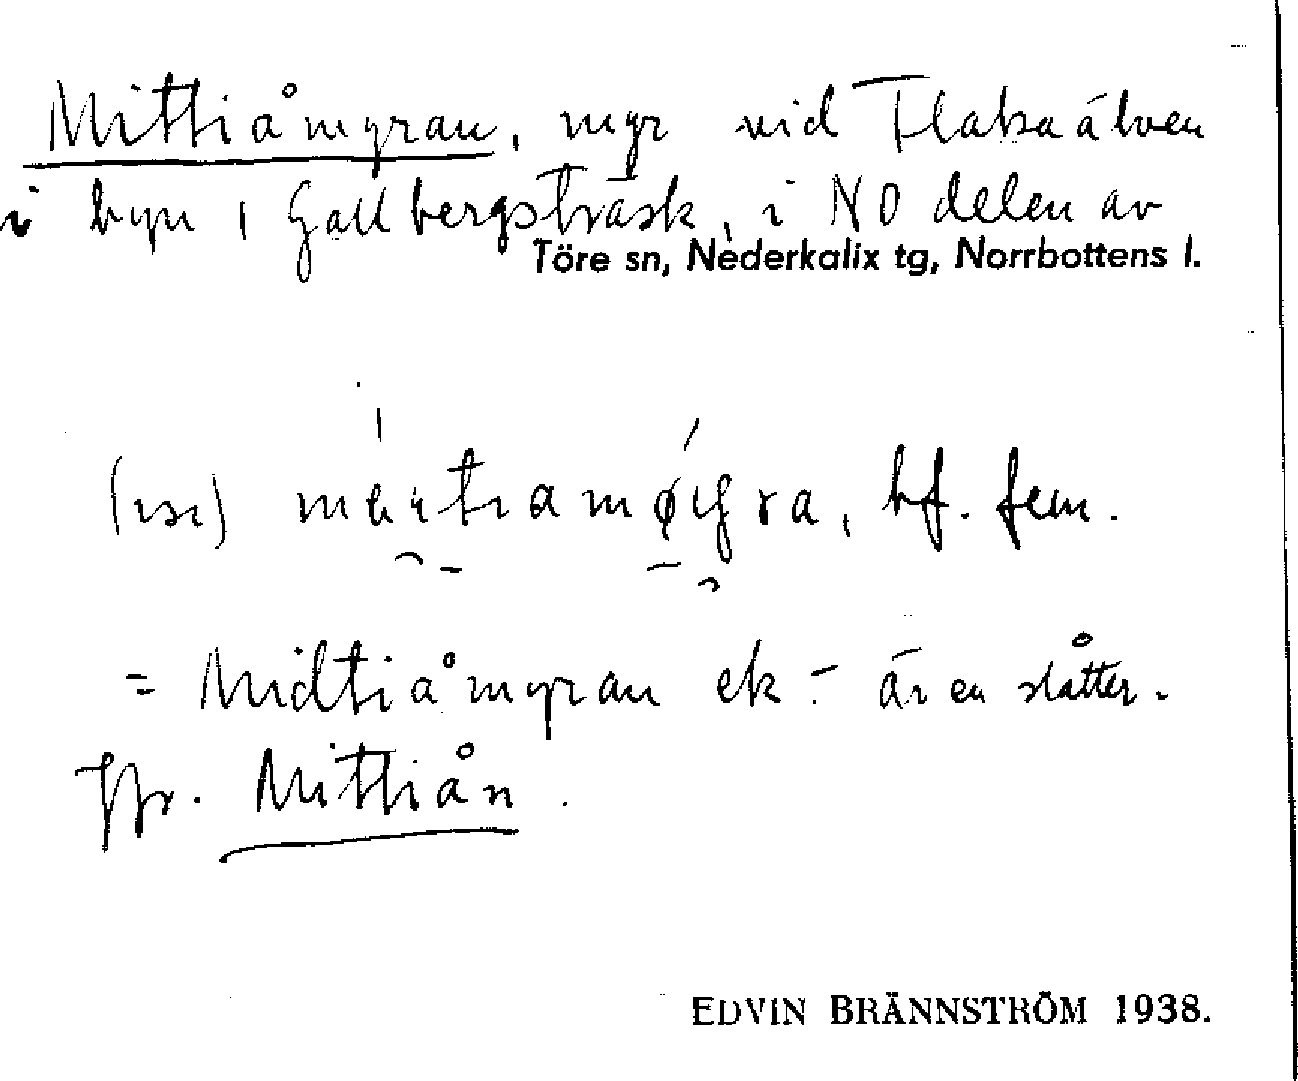 Mittiåmyran, myr vid Flakaälven
i byn, Gällbergsträsk, i NO delen av
Töre sn, Nederkalix tg, Norrbottens l.
bf. fem.
= Midtiåmyran ek - är en slåtter.
Jfr. Mittiån.
EDVIN BRÄNNSTRÖM 1938.